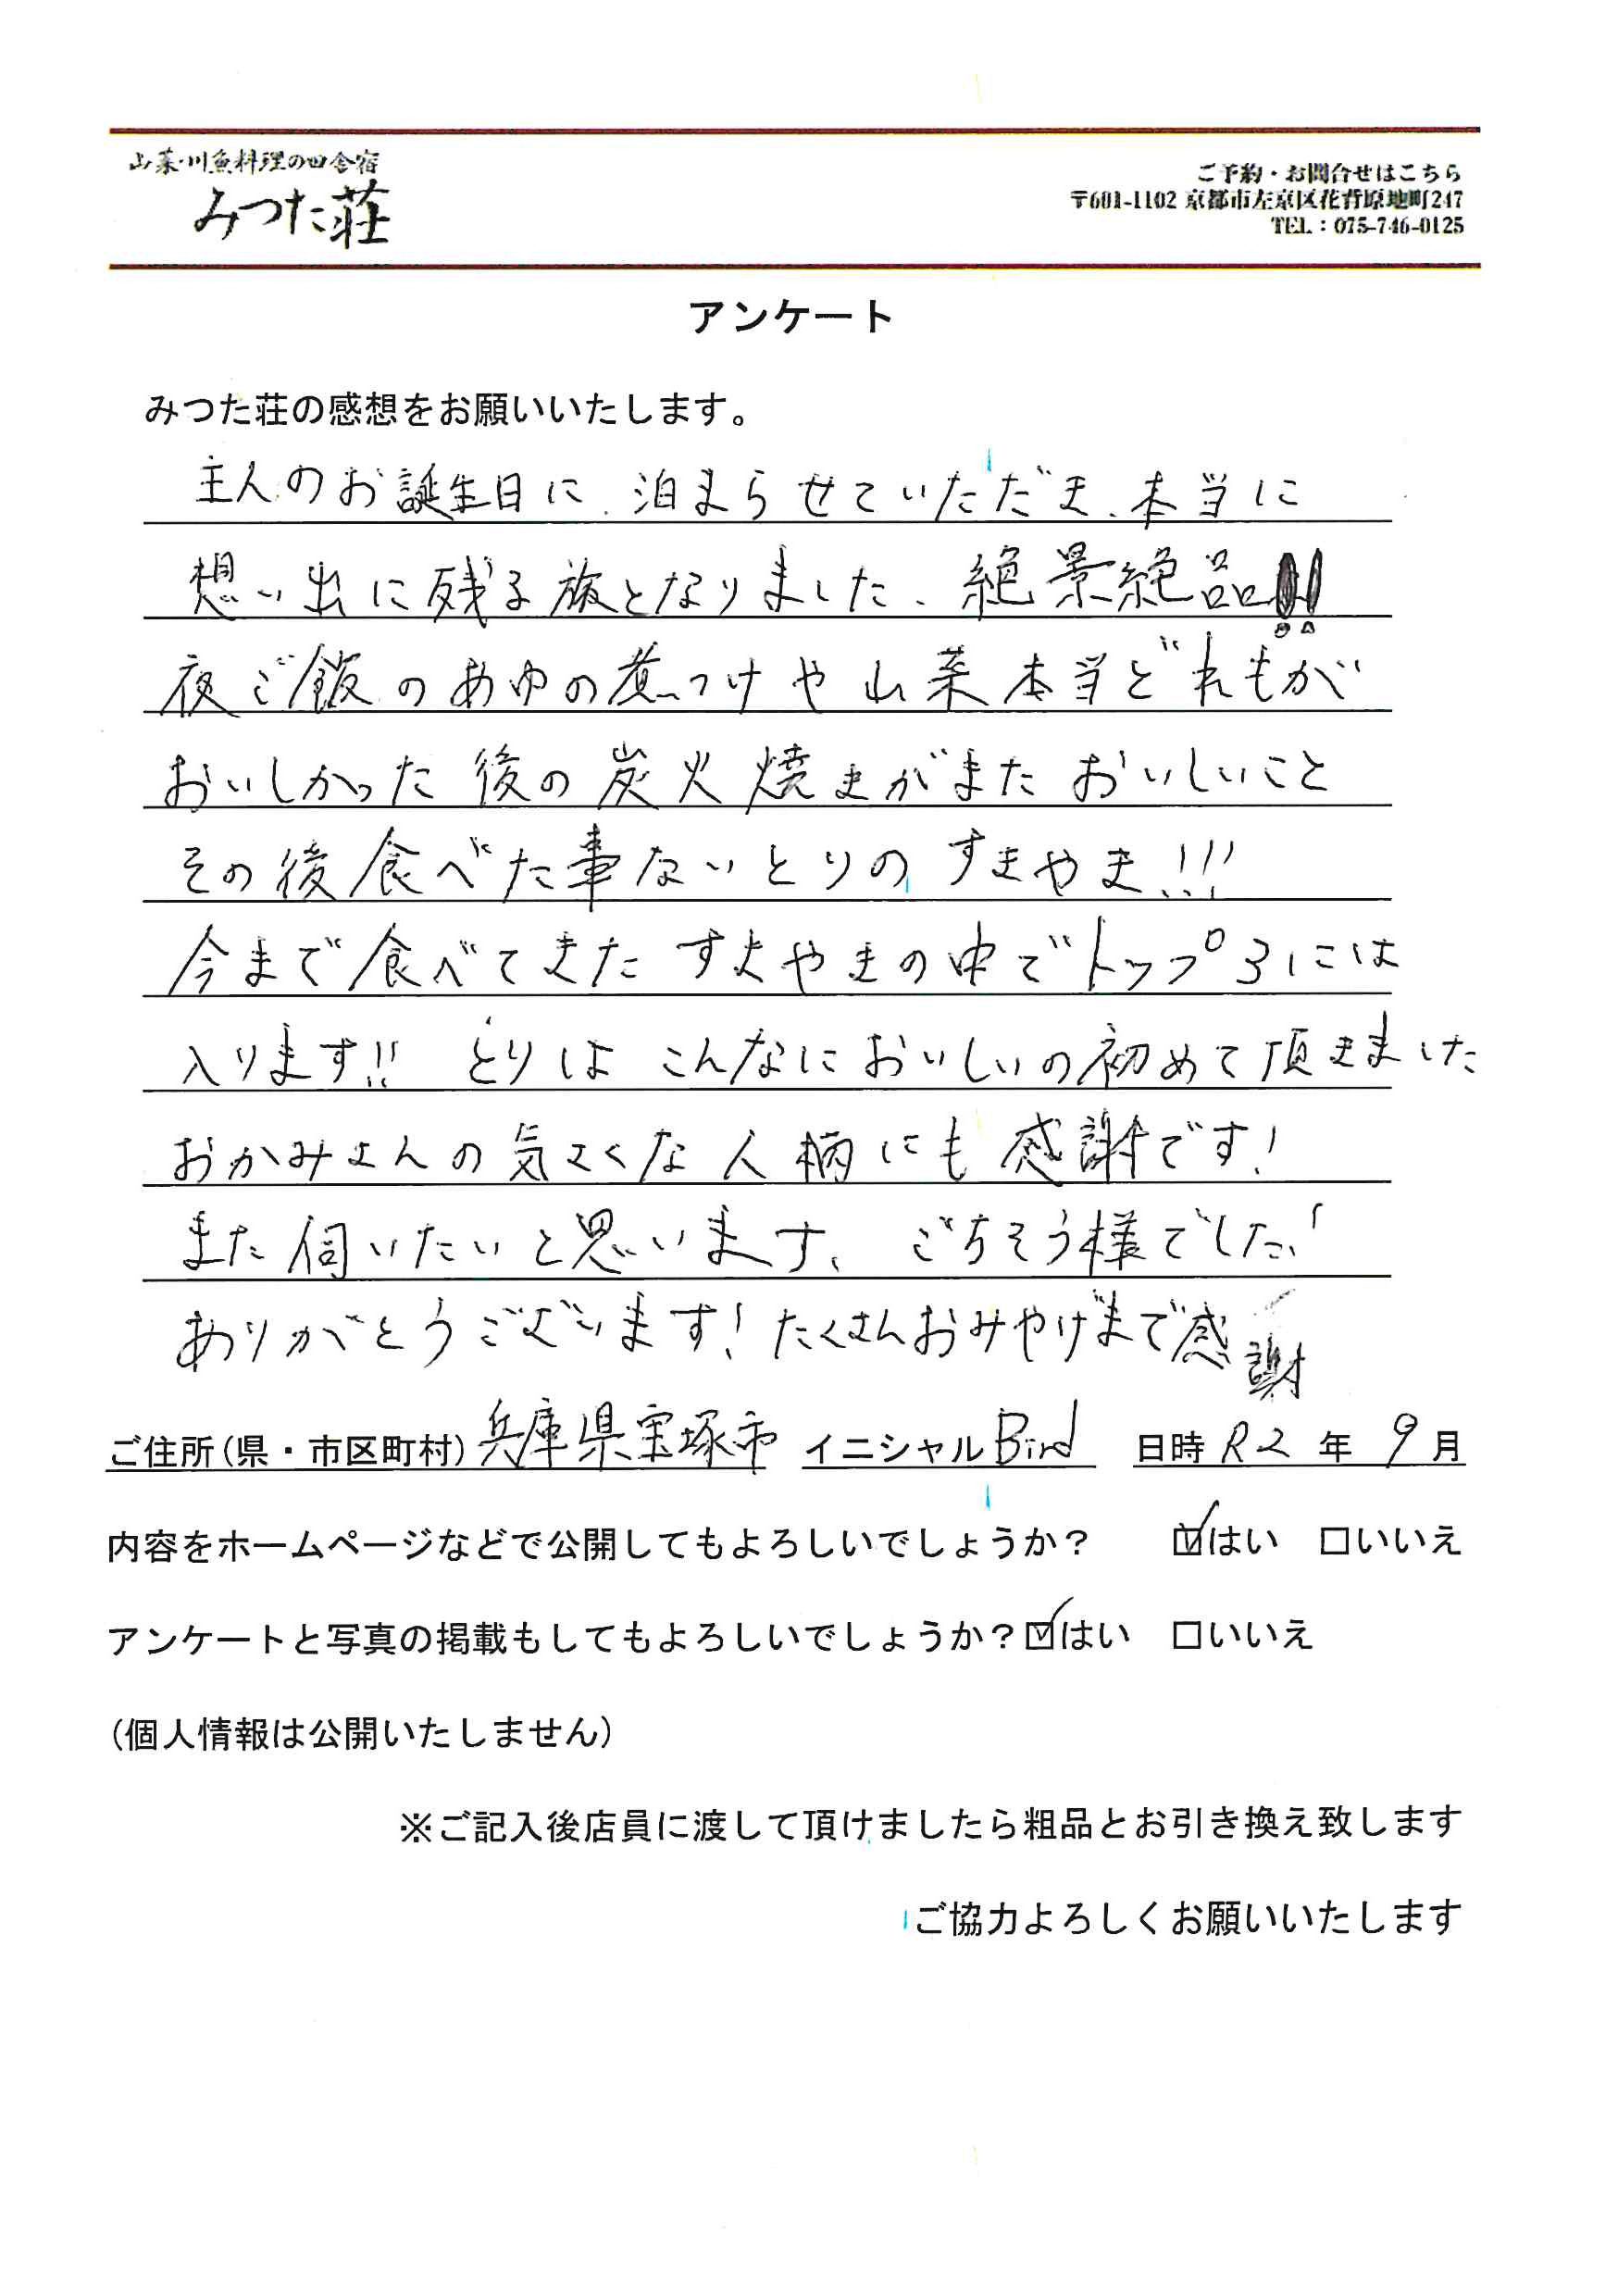 山菜・川魚料理の田舎宿
みつた荘
ご予約・お問合せはこちら
〒601-1102 京都市左京区花背原地町247
TEL：075-746-0125
アンケート
みつた荘の感想をお願いいたします。
主人のお誕生日に、泊まらせていただき、本当に
想い出に残る旅となりました、絶景絶品!!
夜ご飯のあゆの煮つけや山菜本当どれもが
おいしかった後の炭火焼きがまたおいしいこと
その後食べた事ないとりのすきやき!!!
今まで食べてきたすきやきの中でトップ3には
入ります!! とりはこんなにおいしいの初めて頂きました
おかみさんの気さくな人柄にも感謝です!
また伺いたいと思います、ごちそう様でした!
ありがとうございます! たくさんおみやげまで感謝
ご住所(県・市区町村) 兵庫県宝塚市 イニシャル Bird 日時 R2 年 9 月
内容をホームページなどで公開してもよろしいでしょうか? ☑はい □いいえ
アンケートと写真の掲載もしてもよろしいでしょうか? ☑はい □いいえ
(個人情報は公開いたしません)
※ご記入後店員に渡して頂けましたら粗品とお引き換え致します
ご協力よろしくお願いいたします